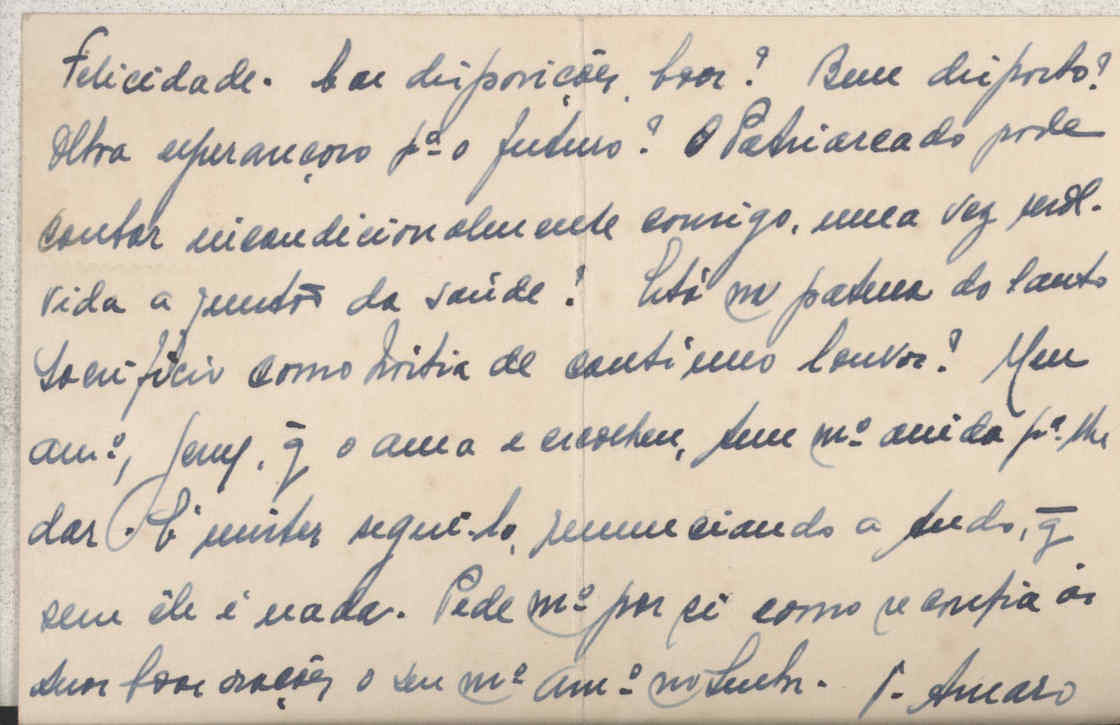 Felicidade. disposições, boas? Bem disposto?
Olha esperançoso pª o futuro? O Patriarcado pode
contar incondicionalmente comigo, uma vez resol-
vida a da saúde? Está na patena do Santo
Sacrifício como hóstia de contínuo louvor? Meu
amº, Jesus, q̄ o ama e escolheu, tem mº ainda pª lhe
dar. É mister segui-lo, renunciando a tudo, q̄
sem êle é nada. Pede mº por si como se confia às
suas boas orações o seu mº amº no Senhor. P. Amaro